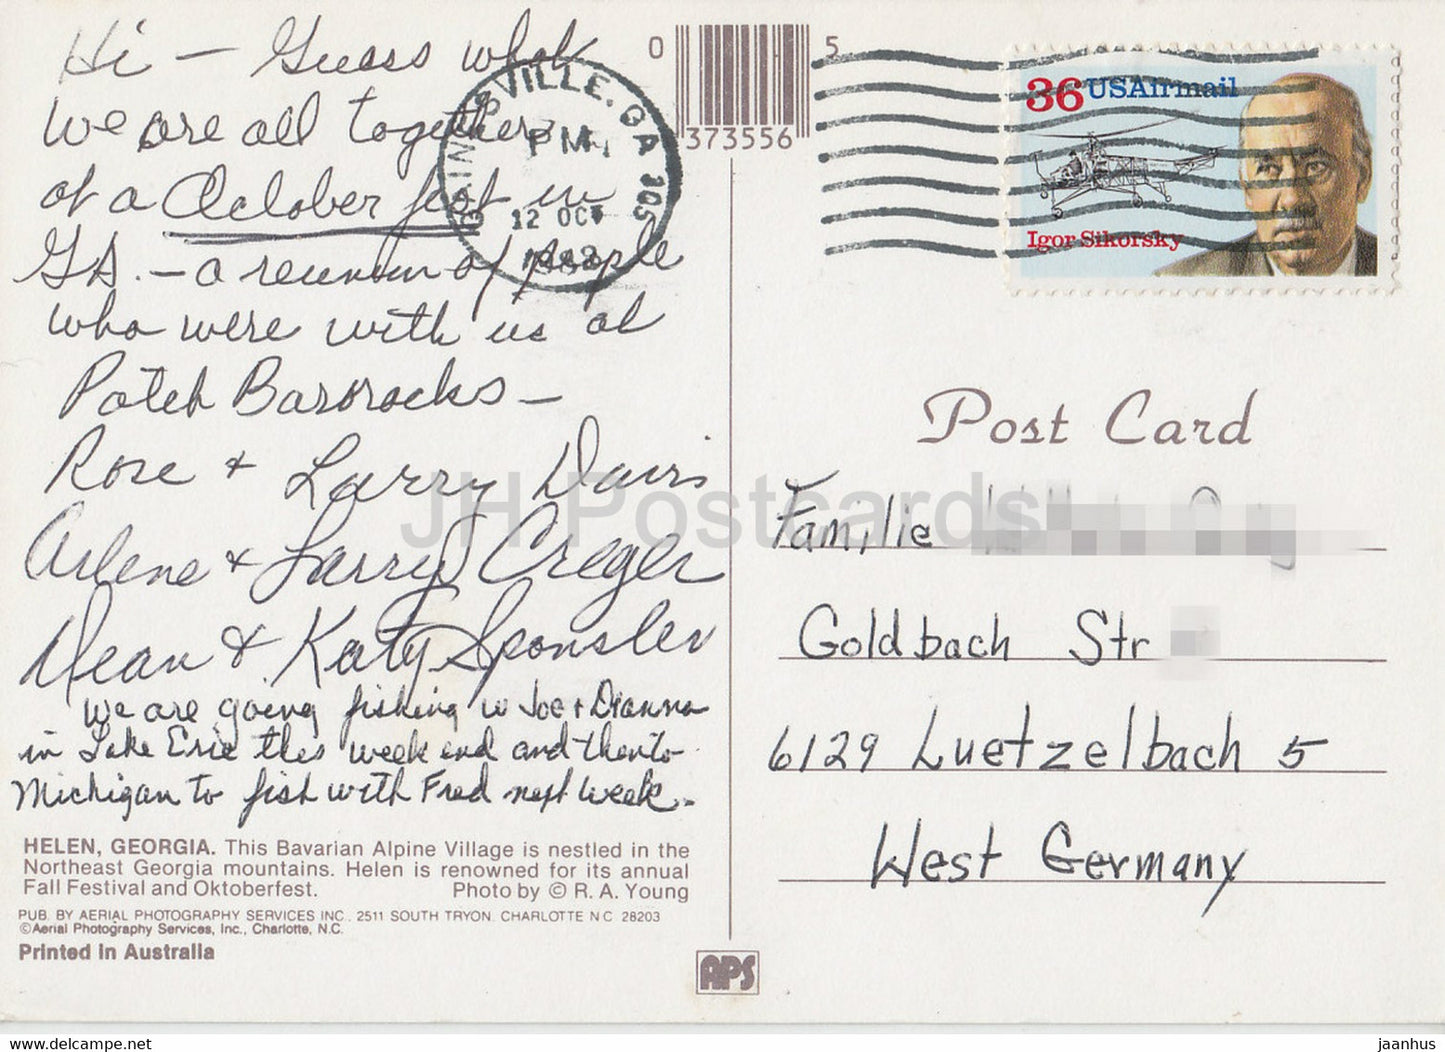 Hi – Guess what
we are all together
at a October fest in
GA. – a reunion of people
who were with us at
Patch Barracks –
Rose + Larry Davis
Arlene + Larry Creger
Dean & Katy Sponsler
We are going fishing w Joe + Dianna
in Lake Erie this week end and then to
Michigan to fish with Fred next week.
HELEN, GEORGIA. This Bavarian Alpine Village is nestled in the
Northeast Georgia mountains. Helen is renowned for its annual
Fall Festival and Oktoberfest. Photo by © R. A. Young
PUB. BY AERIAL PHOTOGRAPHY SERVICES INC. 2511 SOUTH TRYON. CHARLOTTE N C 28203
©Aerial Photography Services, Inc., Charlotte, N.C.
Printed in Australia
0 5
373556
GAINESVILLE. GA 305
PM
12 OCT
1988
36 USAirmail
Igor Sikorsky
Post Card
Familie
Goldbach Str
6129 Luetzelbach 5
West Germany
APS
JH Postcards
www.jaanhus.ecwid.com
jaanhus